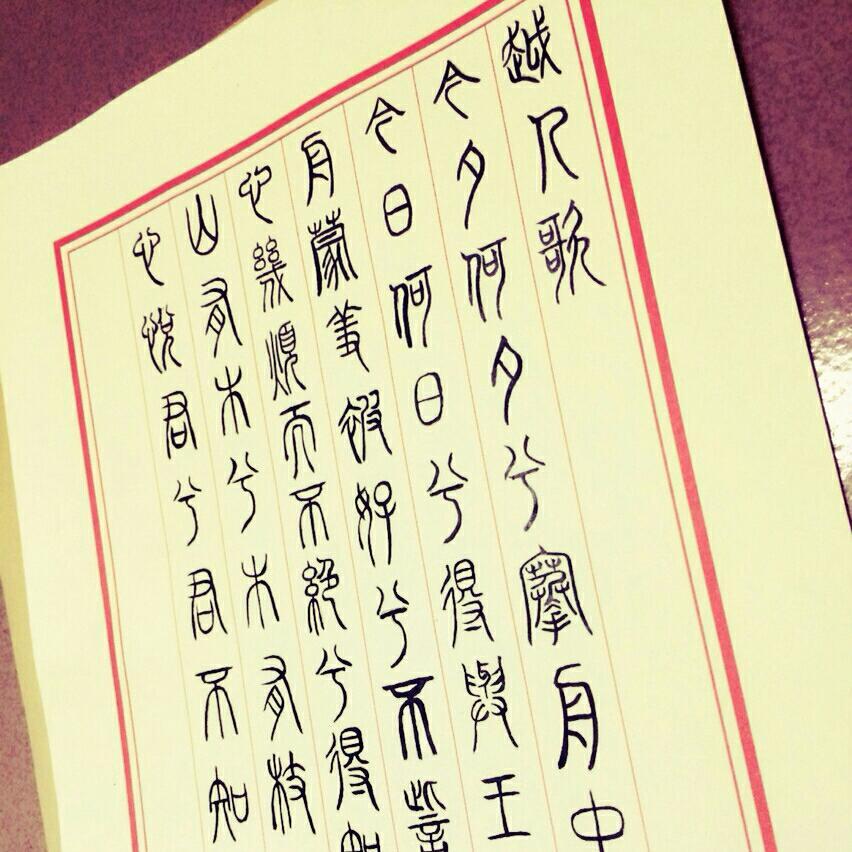 越人歌
今夕何夕兮搴舟中
今日何日兮得與王
舟蒙羞被好兮不訾
心幾煩而不絕兮得知
山有木兮木有枝
心悅君兮君不知